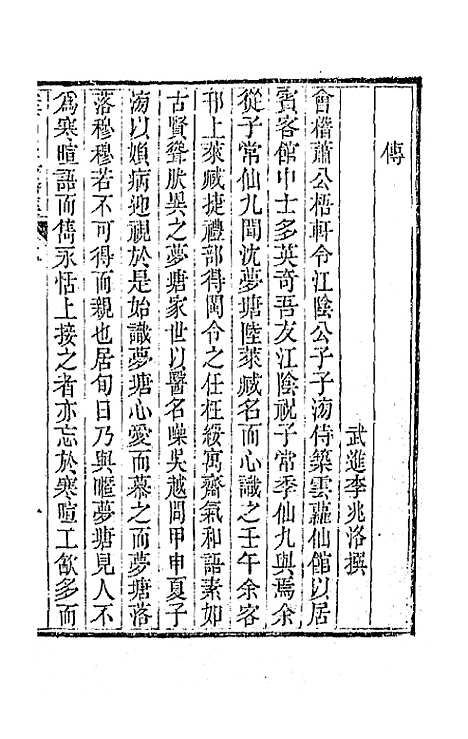 傳
武進李兆洛撰
會稽蕭公梧軒令江陰公子子㳷侍築雲蘿仙館以居
賓客館中士多英奇吾友江陰祝子常季仙九與焉余
從子常仙九聞沈夢塘陸萊臧名而心識之壬午余客
邗上萊臧捷禮部得閩令之任枉綏寓齋氣和語素如
古賢聳肰異之夢塘家世以醫名噪吳越間甲申夏子
㳷以嬾病迎視於是始識夢塘心愛而慕之而夢塘落
落穆穆若不可得而親也居旬日乃與暱夢塘見人不
爲寒暄語而雋永恬上接之者亦忘於寒暄工飲多而